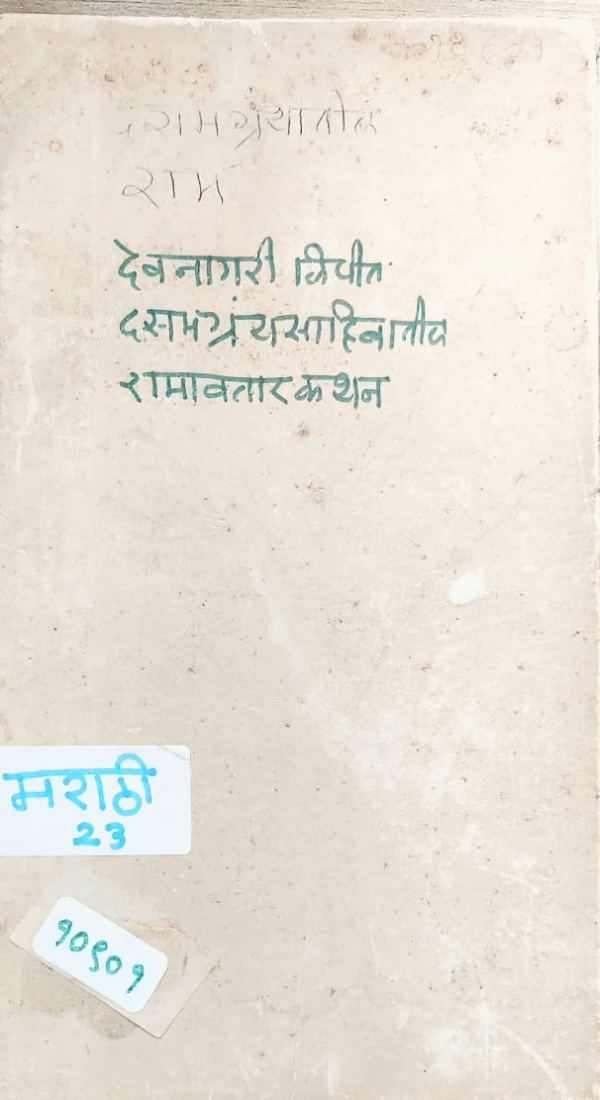 दसमग्रंथातील
राम
देवनागरी लिपीत
दसमग्रंथसाहिबातील
रामावतार कथन
मराठी
23
१०९०१